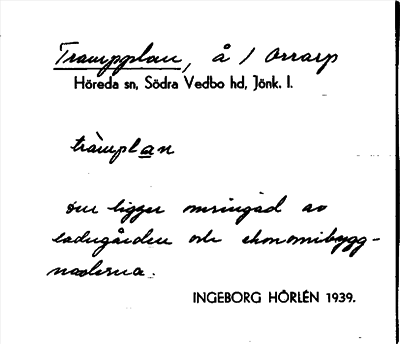 Trampplan, å / Orrarp
Höreda sn, Södra Vedbo hd, Jönk. l.
tràmplan
Den ligger omringad av
ladugården och ekonomibygg-
naderna.
INGEBORG HÖRLÉN 1939.